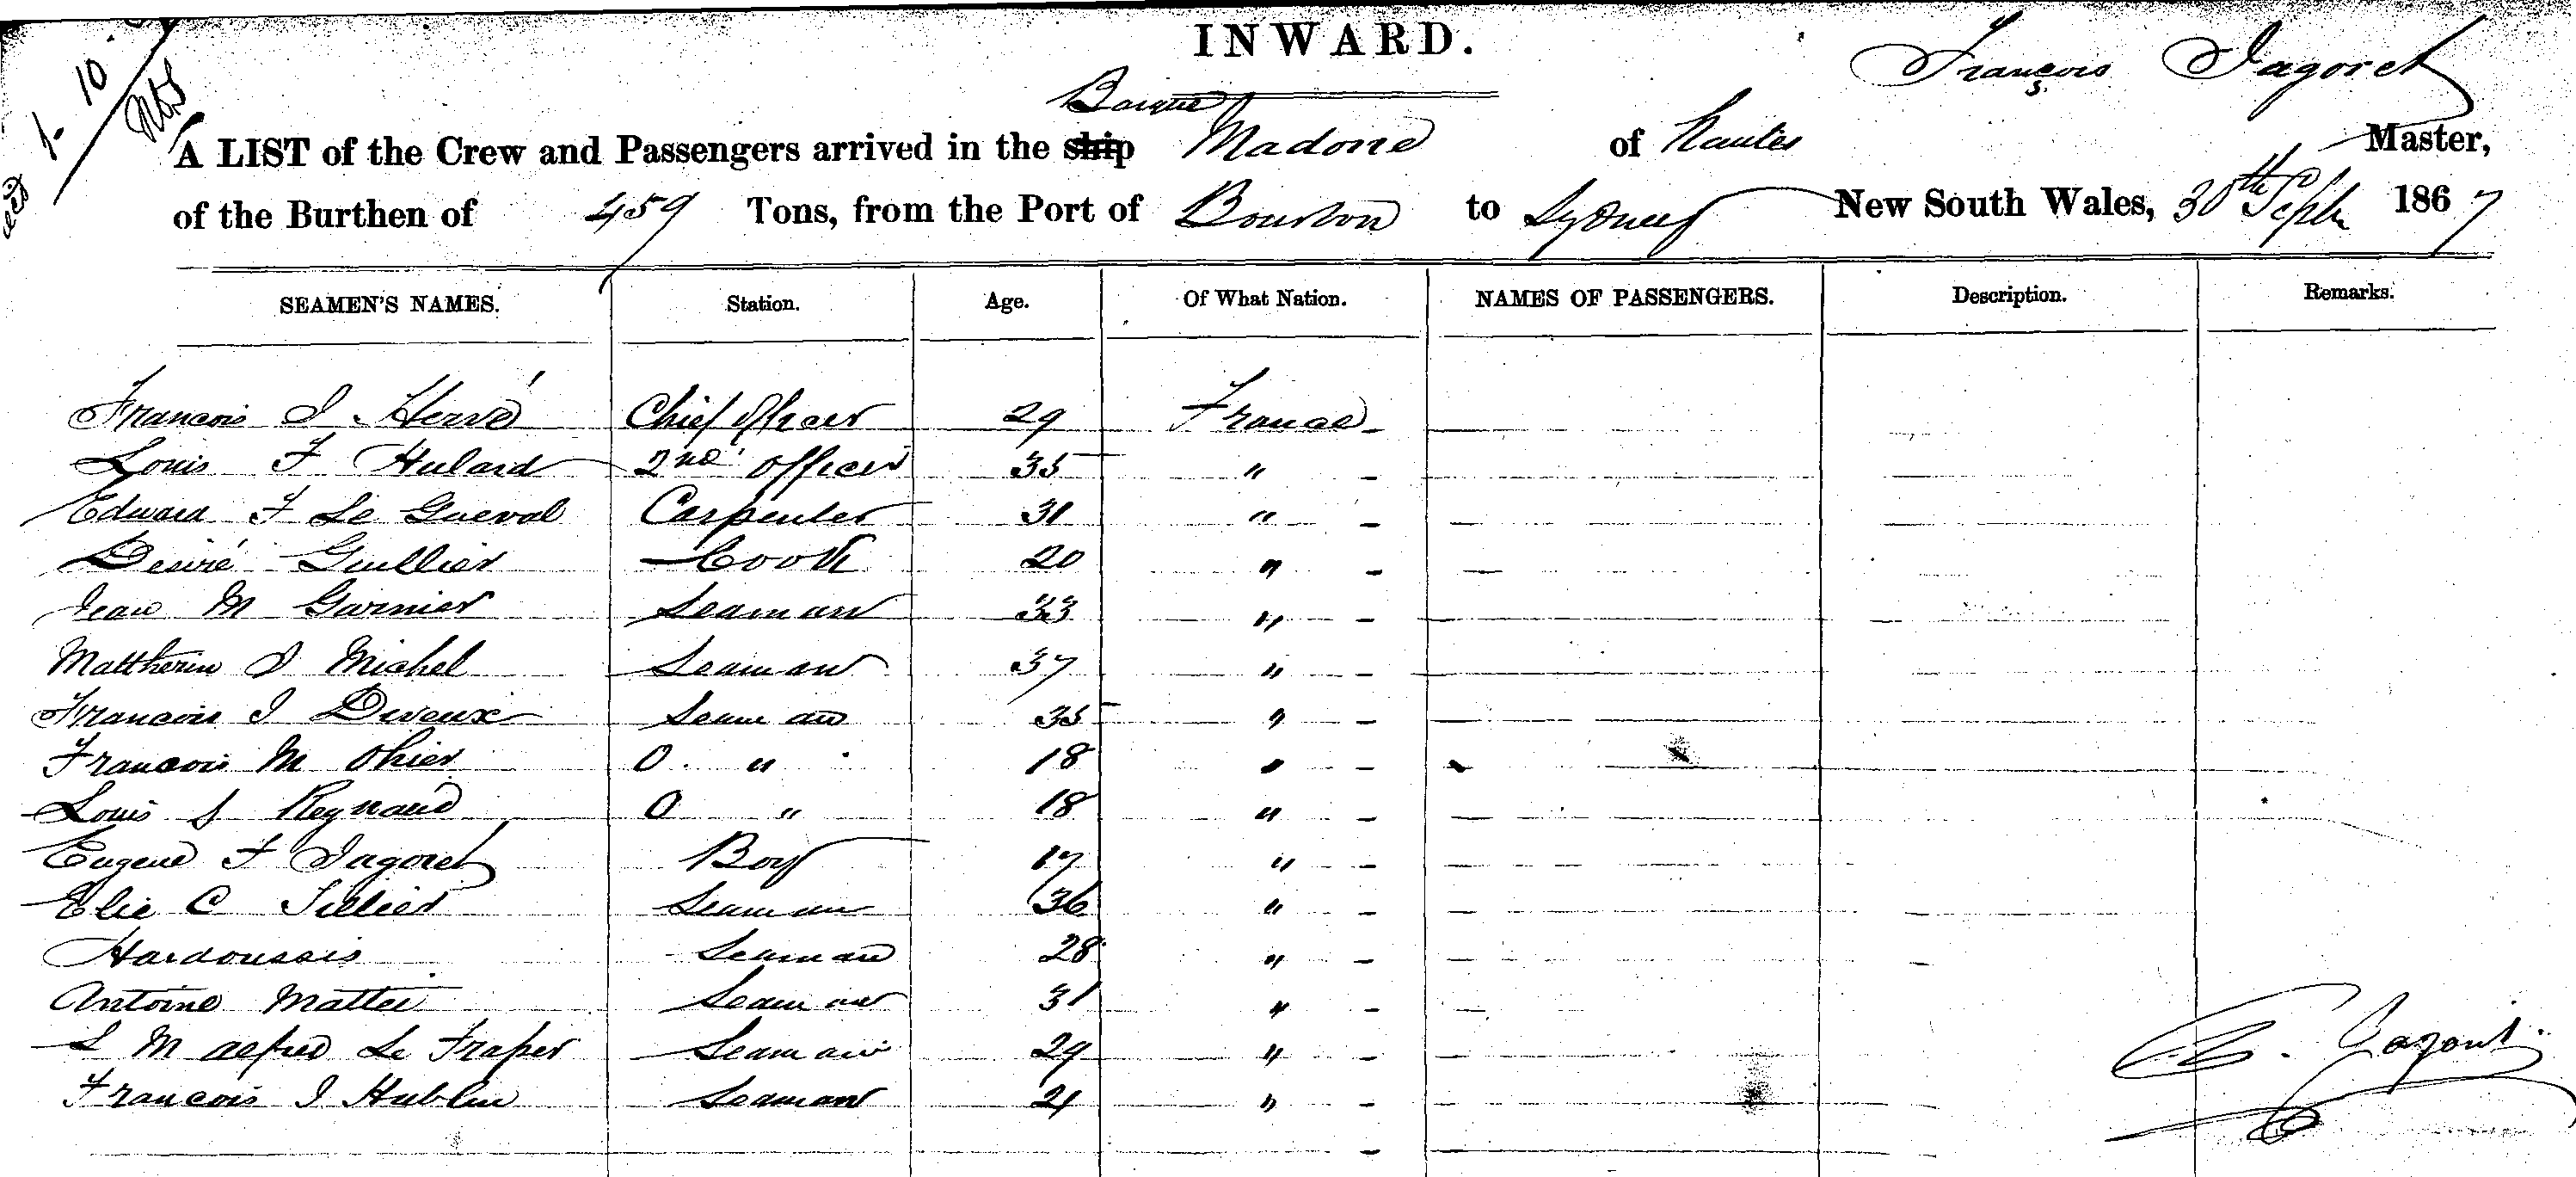 INWARD.
François Jagoret
1. 10
Barque
A LIST of the Crew and Passengers arrived in the ship Madone of Nantes Master,
of the Burthen of 459 Tons, from the Port of Bourbon to Sydney New South Wales, 30th Septr 1867
SEAMEN'S NAMES. Station. Age. Of What Nation. NAMES OF PASSENGERS. Description. Remarks.
Francois J Hervé Chief Officer 29 France
Louis F Hulard 2nd Officer 35 "
Edward F Le Gueval Carpenter 31 "
Desiré Guillier Cook 20 "
Jean M Garnier Seaman 33 "
Matthurin J Michel Seaman 37 "
Francois J Deveux Seaman 35 "
Francois M Ohier O " 18 "
Louis S Reynaud O " 18 "
Eugene F Jagoret Boy 17 "
Elie C Tillier Seaman 36 "
Hardoussais Seaman 28 "
Antoine Mattei Seaman 31 "
L M Alfred Le Fraper Seaman 29 "
Francois J Hublin Seaman 21 "